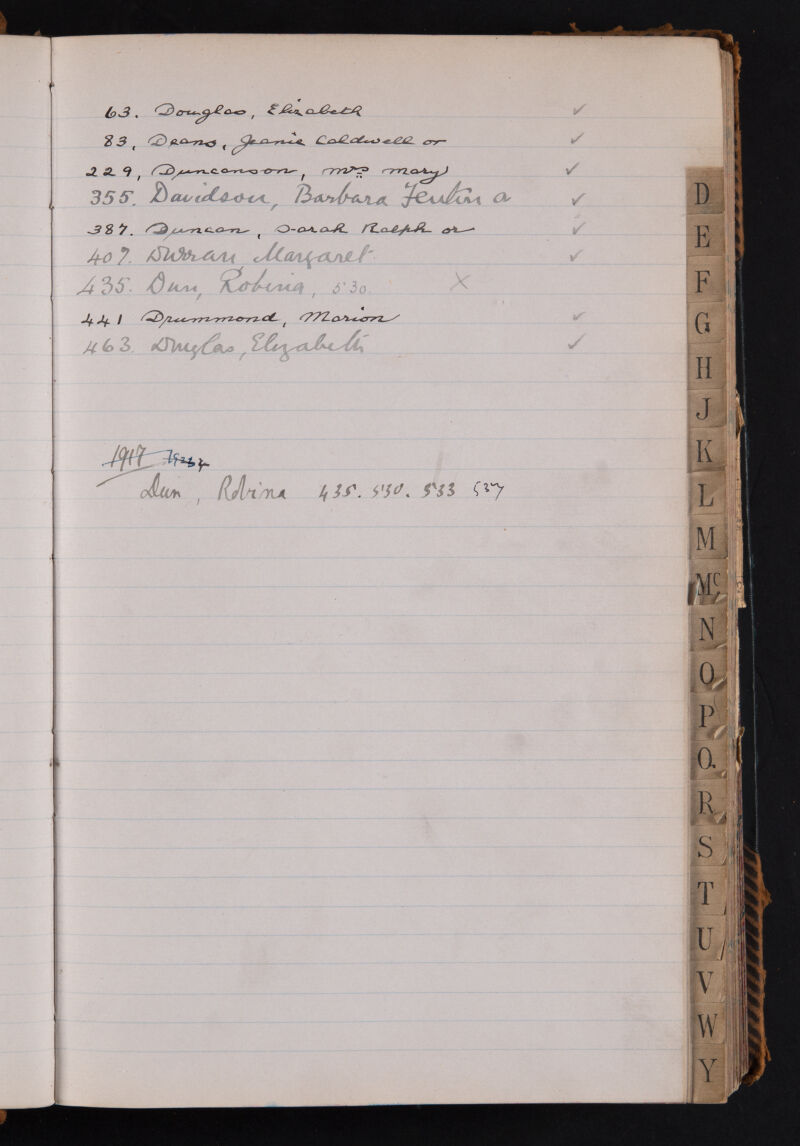 63. Douglas, Elizabeth ✓
83, Deans, Jeanie Caldwell or ✓
229, Duncanson, Mrs Mary ✓
355. Davidson, Barbara Fenton or ✓
387. Duncan, Sarah Ralph or ✓
407. Durran Margaret ✓
435. Dun, Robina, 530. X
441 Drummond, Marion ✓
463. Douglas, Elizabeth ✓
1917
Dun, Robina 435. 530. 533 537
D
E
F
G
H
J
K
L
M
Mc
N
O
P
Q.
R
S
T
U
V
W
Y